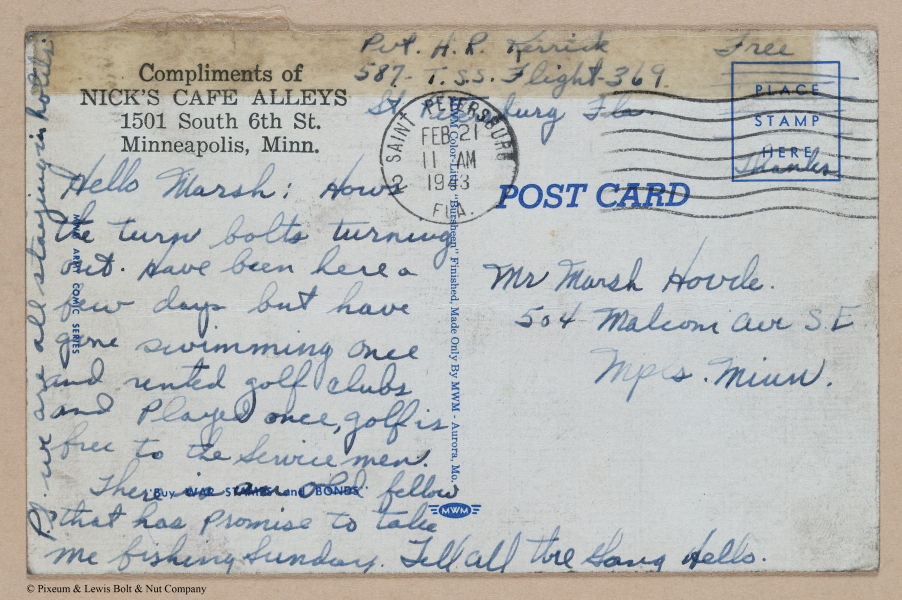 Pvt. H. R. Kerrick Free
587- T.S.S. Flight-369.
St. Petersburg Fla.
Compliments of
NICK'S CAFE ALLEYS
1501 South 6th St.
Minneapolis, Minn.
SAINT PETERSBURG
FEB 21
11 AM
1943
2
FLA.
PLACE
STAMP
HERE
Thanks
POST CARD
Hello Marsh: Hows
the turn bolts turning
out. Have been here a
few days but have
gone swimming once
and rented golf clubs
and Played once, golf is
free to the Service men.
There is an old fellow
that has Promise to take
me fishing Sunday. Tell all the Gang Hello.
P.S. we are all staying in hotels.
Mr Marsh Howde.
504 Malcom Ave S.E
Mpls. Minn.
MWM ARMY COMIC SERIES
MWM Color-Litho "Bursheen" Finished, Made Only By MWM - Aurora, Mo.
"Buy WAR STAMPS and BONDS"
MWM
© Pixeum & Lewis Bolt & Nut Company